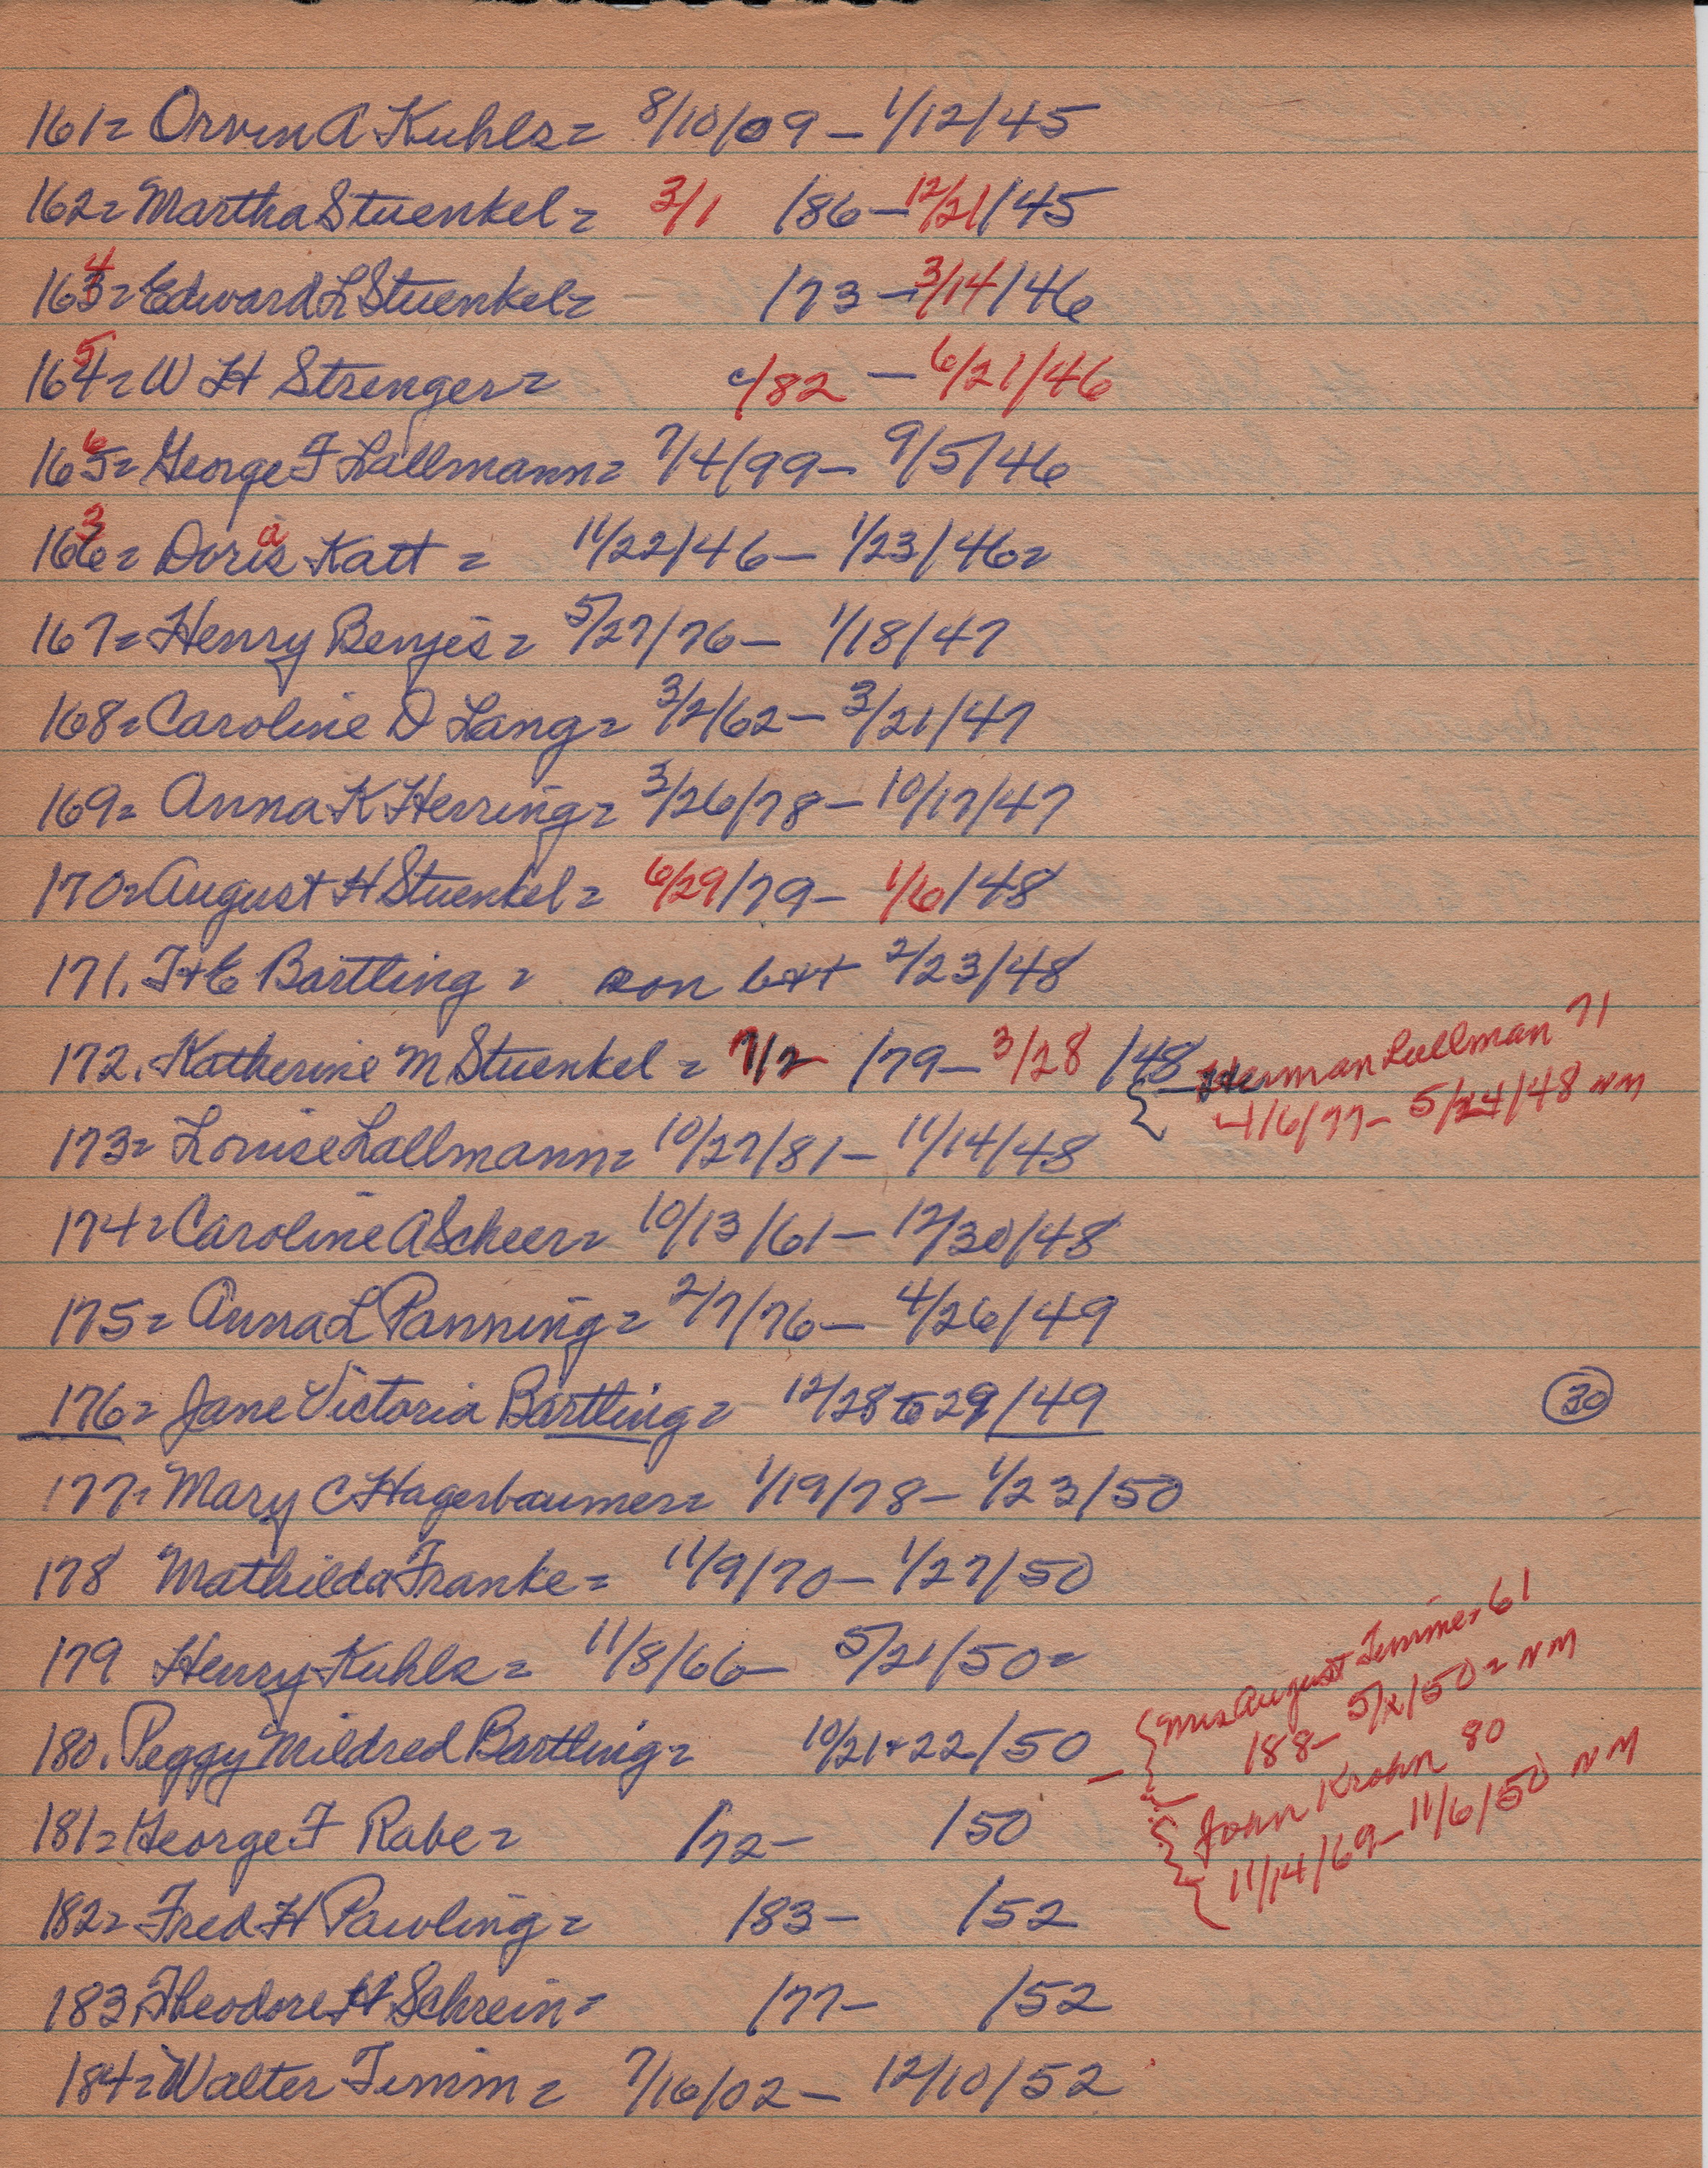 161= Orvin A Kuhls= 8/10/09 – 1/12/45
162= Martha Stuenkel= 3/1 /86 – 12/21/45
4
163= Edward L Stuenkel= /73 – 3/14/46
5
164= W H Strenger= c/82 – 6/21/46
6
165= George F Lallmann= 7/4/99 – 9/5/46
3 a
166= Doris Katt = 11/22/46 – 1/23/46=
167= Henry Benjes= 5/27/76 – 1/18/47
168= Caroline D Lang= 3/2/62 – 3/21/47
169= Anna K Herring= 3/26/78 – 10/17/47
170= August H Stuenkel= 6/29/79 – 1/6/48
171. H E Bartling = son b++ 2/23/48
172. Katherine M Stuenkel = 7/2 /79 – 3/28 /48 Herman Lallman 71
4/6/77 – 5/24/48 NM
173= Louise Lallmann= 10/27/81 – 11/14/48
174= Caroline A Scheer= 10/13/61 – 12/30/48
175= Anna L Panning= 2/7/76 – 4/26/49
176= Jane Victoria Bartling= 12/28 to 29/49 30
177= Mary C Hagerbaumer= 1/19/78 – 1/23/50
178 Mathilda Franke= 11/9/70 – 1/27/50
179 Henry Kuhls= 11/8/66 – 5/21/50=
Mrs August Timmer 61
188 – 5/2/50= NM
180. Peggy Mildred Bartling= 10/21+22/50
John Krohn 80
11/14/69 – 11/6/50 NM
181= George F Rabe= /72 – /50
182= Fred H Pawling= /83 – /52
183 Theodore H Schrein= /77 – /52
184= Walter Timm= 7/16/02 – 12/10/52